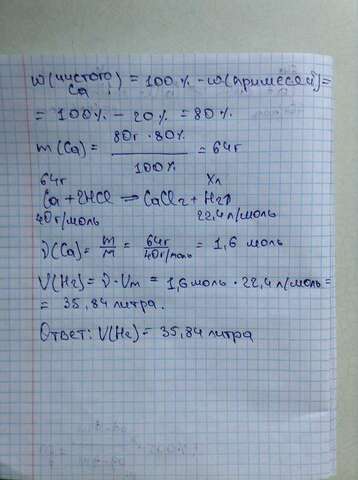 w(чистого Ca) = 100% - w(примесей) =
= 100% - 20% = 80%
m(Ca) = 80г · 80% / 100% = 64г
64г Xл
Ca + 2HCl = CaCl2 + H2↑
40г/моль 22,4 л/моль
ν(Ca) = m/M = 64г / 40г/моль = 1,6 моль
V(H2) = ν · Vm = 1,6 моль · 22,4 л/моль =
= 35,84 литра.
Ответ: V(H2) = 35,84 литра